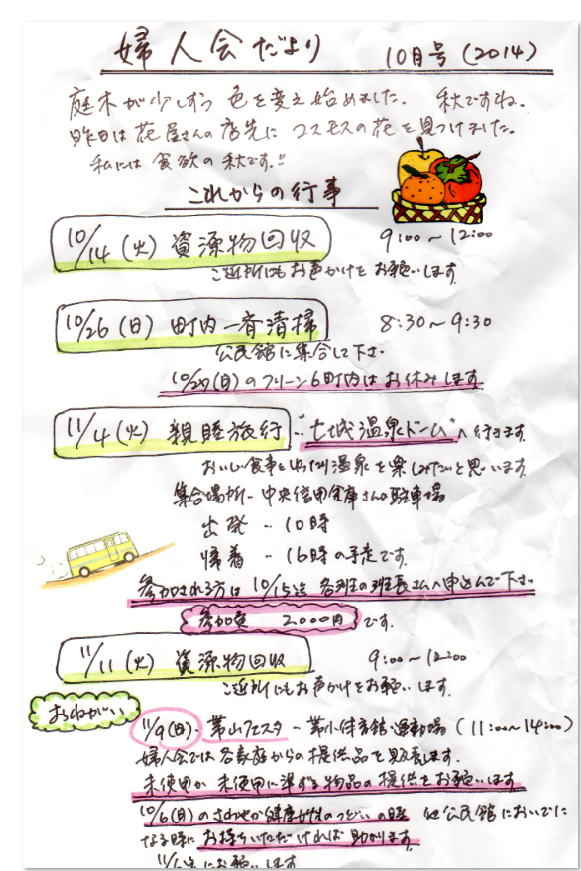 婦人会だより 10月号(2014)
庭木が少しずつ色を変え始めました。 秋ですね。
昨日は花屋さんの店先にコスモスの花を見つけました。
私には食欲の秋です!!
これからの行事
10/14(火) 資源物回収 9:00~12:00
ご近所にもお声かけをお願いします。
10/26(日) 町内一斉清掃 8:30~9:30
公民館に集合して下さい
(日)のクリーン6町内はお休みします
11/4(火) 親睦旅行--"七城温泉ドーム"へ行きます。
おいしい食事とゆったり温泉を楽しみたいと思います。
集合場所-中央信用金庫さんの駐車場
出発 - 10時
帰着 - 16時の予定です。
参加される方は10/15迄 各班の班長さんへ申込んで下さい
参加費 2,000円です。
11/11(火) 資源物回収 9:00~12:00
ご近所にもお声かけをお願いします。
おねがい
11/9(日)-帯山フェスタ-帯小体育館・運動場(11:00~14:00)
婦人会では各家庭からの提供品を販売します。
未使用か未使用に準ずる物品の提供をお願いします
10/6(日)のさわやか健康 のつどいの時 公民館においでに
なる時にお持ちいただければ助かります。
にお願いします